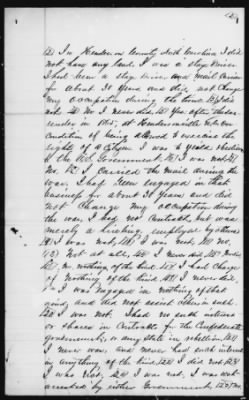 (2) In Henderson County North Carolina I did
not have any land. I was a stage Driver
I had been a stage Driver and mail Carrier
for about 30 years and did not Change
my occupation during the time (3) I did
not, (4) No I never did (5) Yes after the Sur
render in 1865, at Hendersonville N.C. on
Condition of being allowed to exercise the
rights of a Citizen I was
the U.S. Government. (6) I was not (7)
No. I carried the mail during the
war, I had been engaged in that
business for about 30 years and did
not Change my occupation during
the war, I had no Contract, but was
merely a hireling, employed by others
I was not, I was not, No
(13) Not at all, I never did
no, nothing of the kind, I had Charge
of nothing of the kind, I never did,
I was engaged in nothing of that
kind, and did not assist others in such
I was not, I had no such interest
or shares in Contracts for the Confederate
government, or any state in rebellion
I never was, and never had such interest
in anything of the kind, I did not
I was not, I was not, I was not
arrested by either Government,